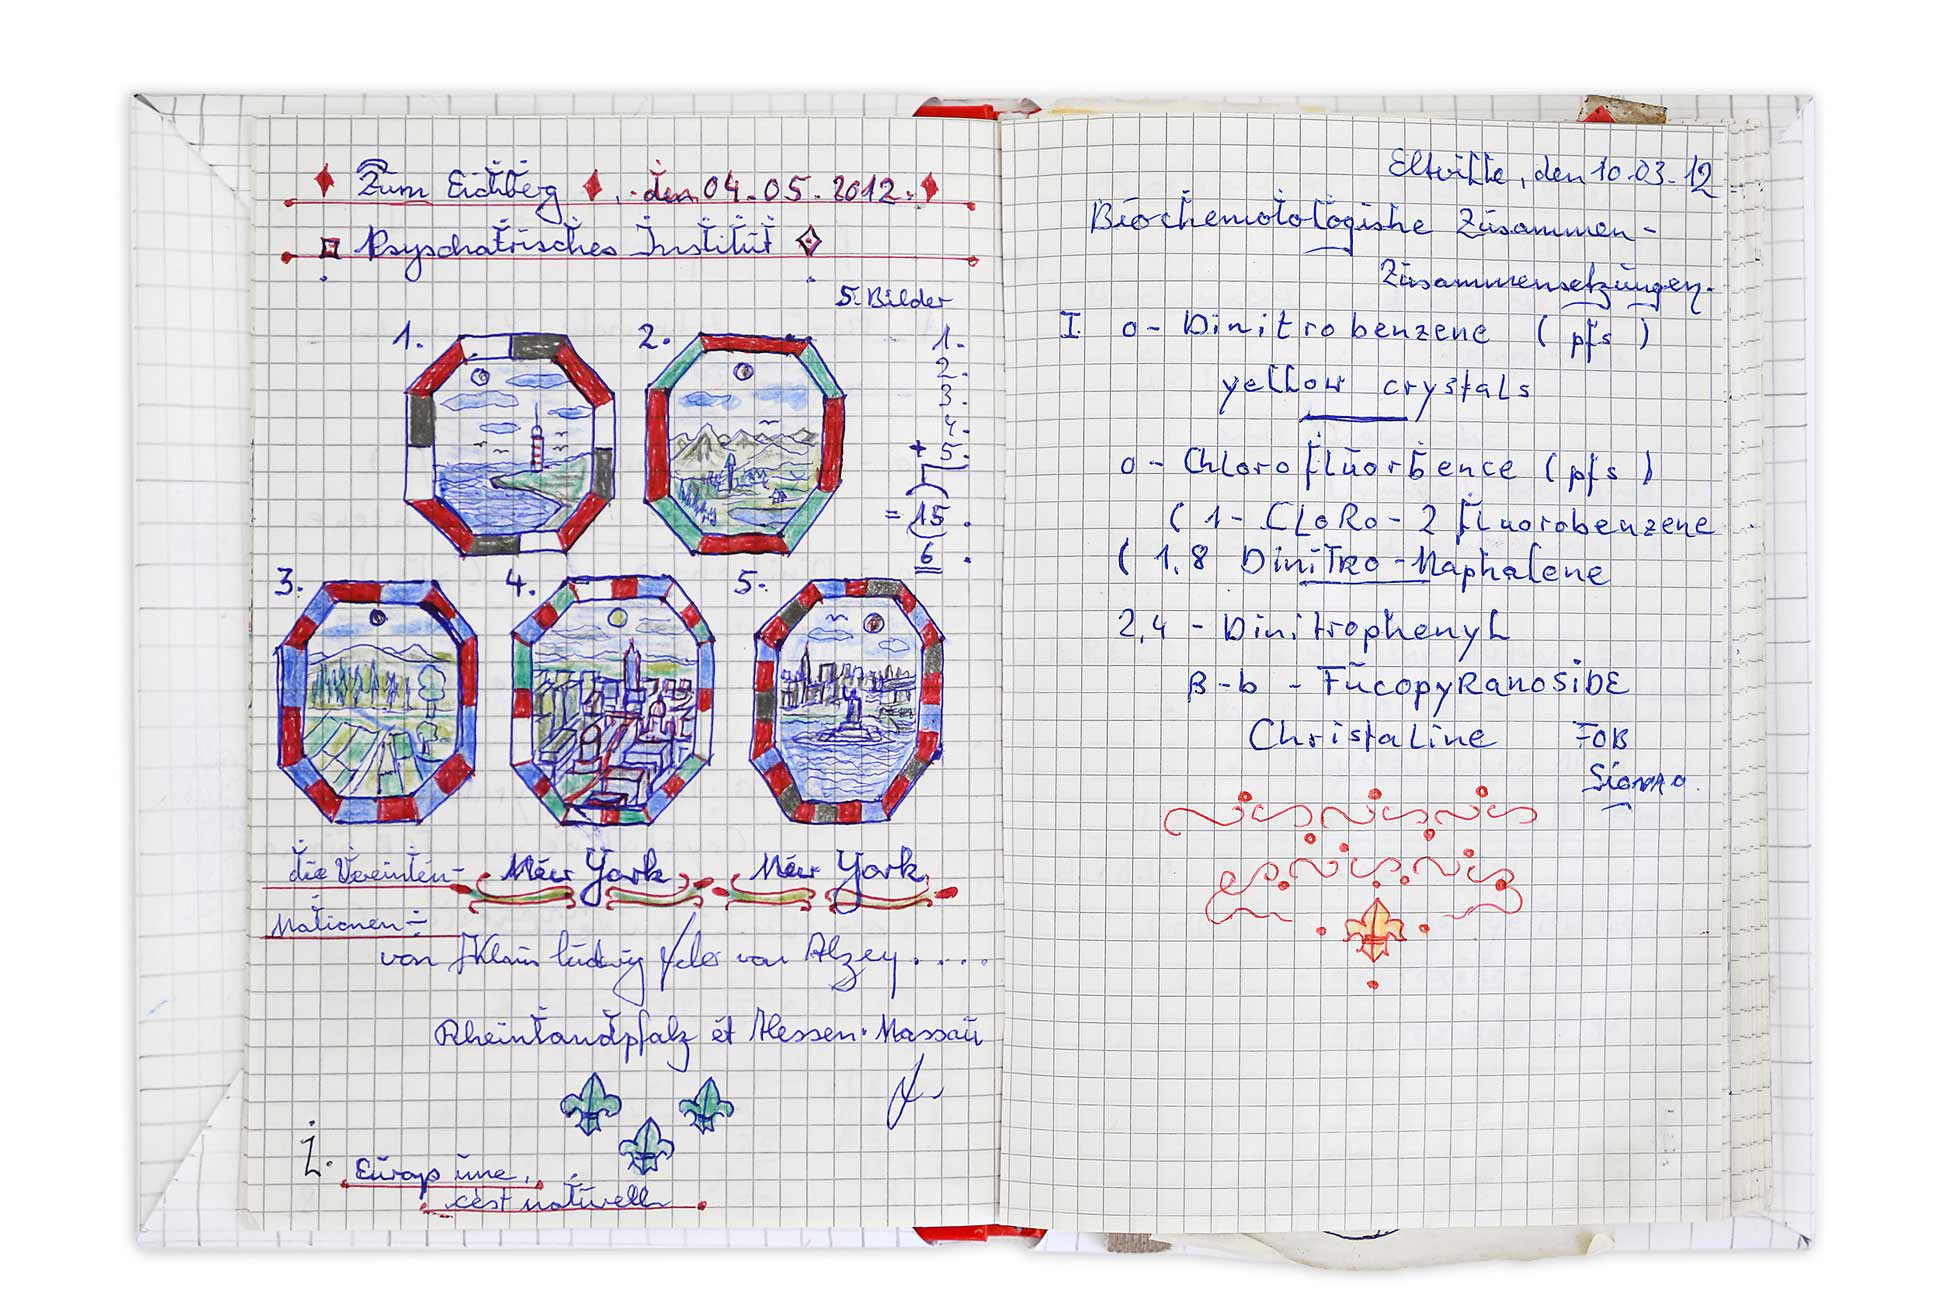 Zum Eichberg, den 04.05.2012.
Psyschatrisches Institut
5. Bilder
1. 2.
1.
2.
3.
4.
+ 5.
= 15.
6.
3. 4. 5.
die Vereinten- New York New York
Nationen=
von Klaus Ludwig von Alzey . . . .
Rheinlandpfalz et Hessen-Nassau
Europ une,
c'est naturell
Eltville, den 10.03.12
Biochemotologishe Zusammen-
Zusammensetzungen.
I. o- Dinitrobenzene ( pfs )
yellow crystals
o- Chlorofluorbence ( pfs )
( 1- CLoRo- 2 Fluorobenzene
( 1,8 DiniTRo-Naphalene
2,4 - DiniTrophenyl
β-b - FucopyRanoSiDE
Christaline FOB